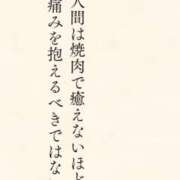 人間は焼肉で癒えないほど
痛みを抱えるべきではな